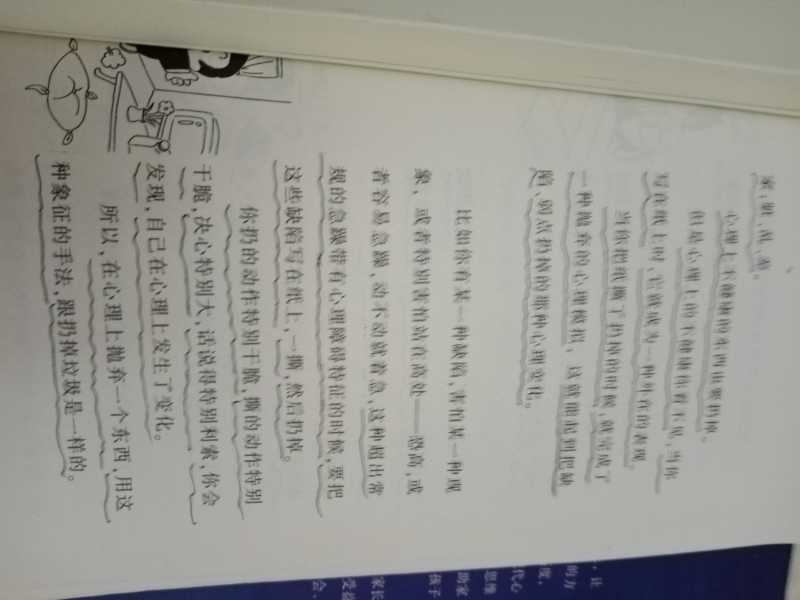 家，脏，乱，差。
心理上不健康的东西也要扔掉。
但是心理上的不健康你看不见，当你
写在纸上时，它就成为一种外在的表现。
当你把纸撕了扔掉的时候，就完成了
一种抛弃的心理模拟，这就能起到把缺
陷、弱点扔掉的那种心理变化。
比如你有某一种缺陷，害怕某一种现
象，或者特别害怕站在高处——恐高，或
者容易急躁，动不动就着急，这种超出常
规的急躁带有心理障碍特征的时候，要把
这些缺陷写在纸上，一撕，然后扔掉。
你扔的动作特别干脆，撕的动作特别
干脆，决心特别大，话说得特别利索，你会
发现，自己在心理上发生了变化。
所以，在心理上抛弃一个东西，用这
种象征的手法，跟扔掉垃圾是一样的。
，让
的方
度，
代心
思维
助家
孩子
家长
受益
会，